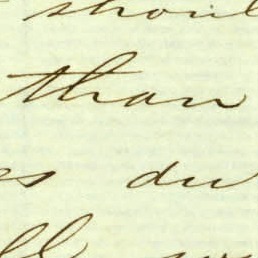 shoul
than
es du
ll